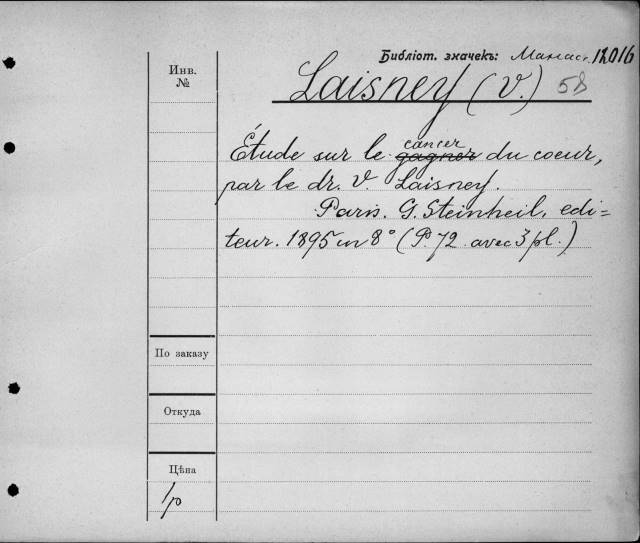 Библіот. значекъ: Манас. 12016
Инв.
№
Laisney (V.) 58
cancer
Étude sur le gagner du coeur,
par le dr. V. Laisney.
Paris. G. Steinheil, edi=
teur. 1895 in 8° (P. 72 avec 3 pl.)
По заказу
Откуда
Цѣна
1р